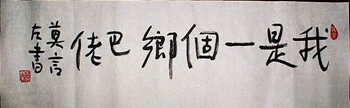 我是一個鄉巴佬
莫言
左書